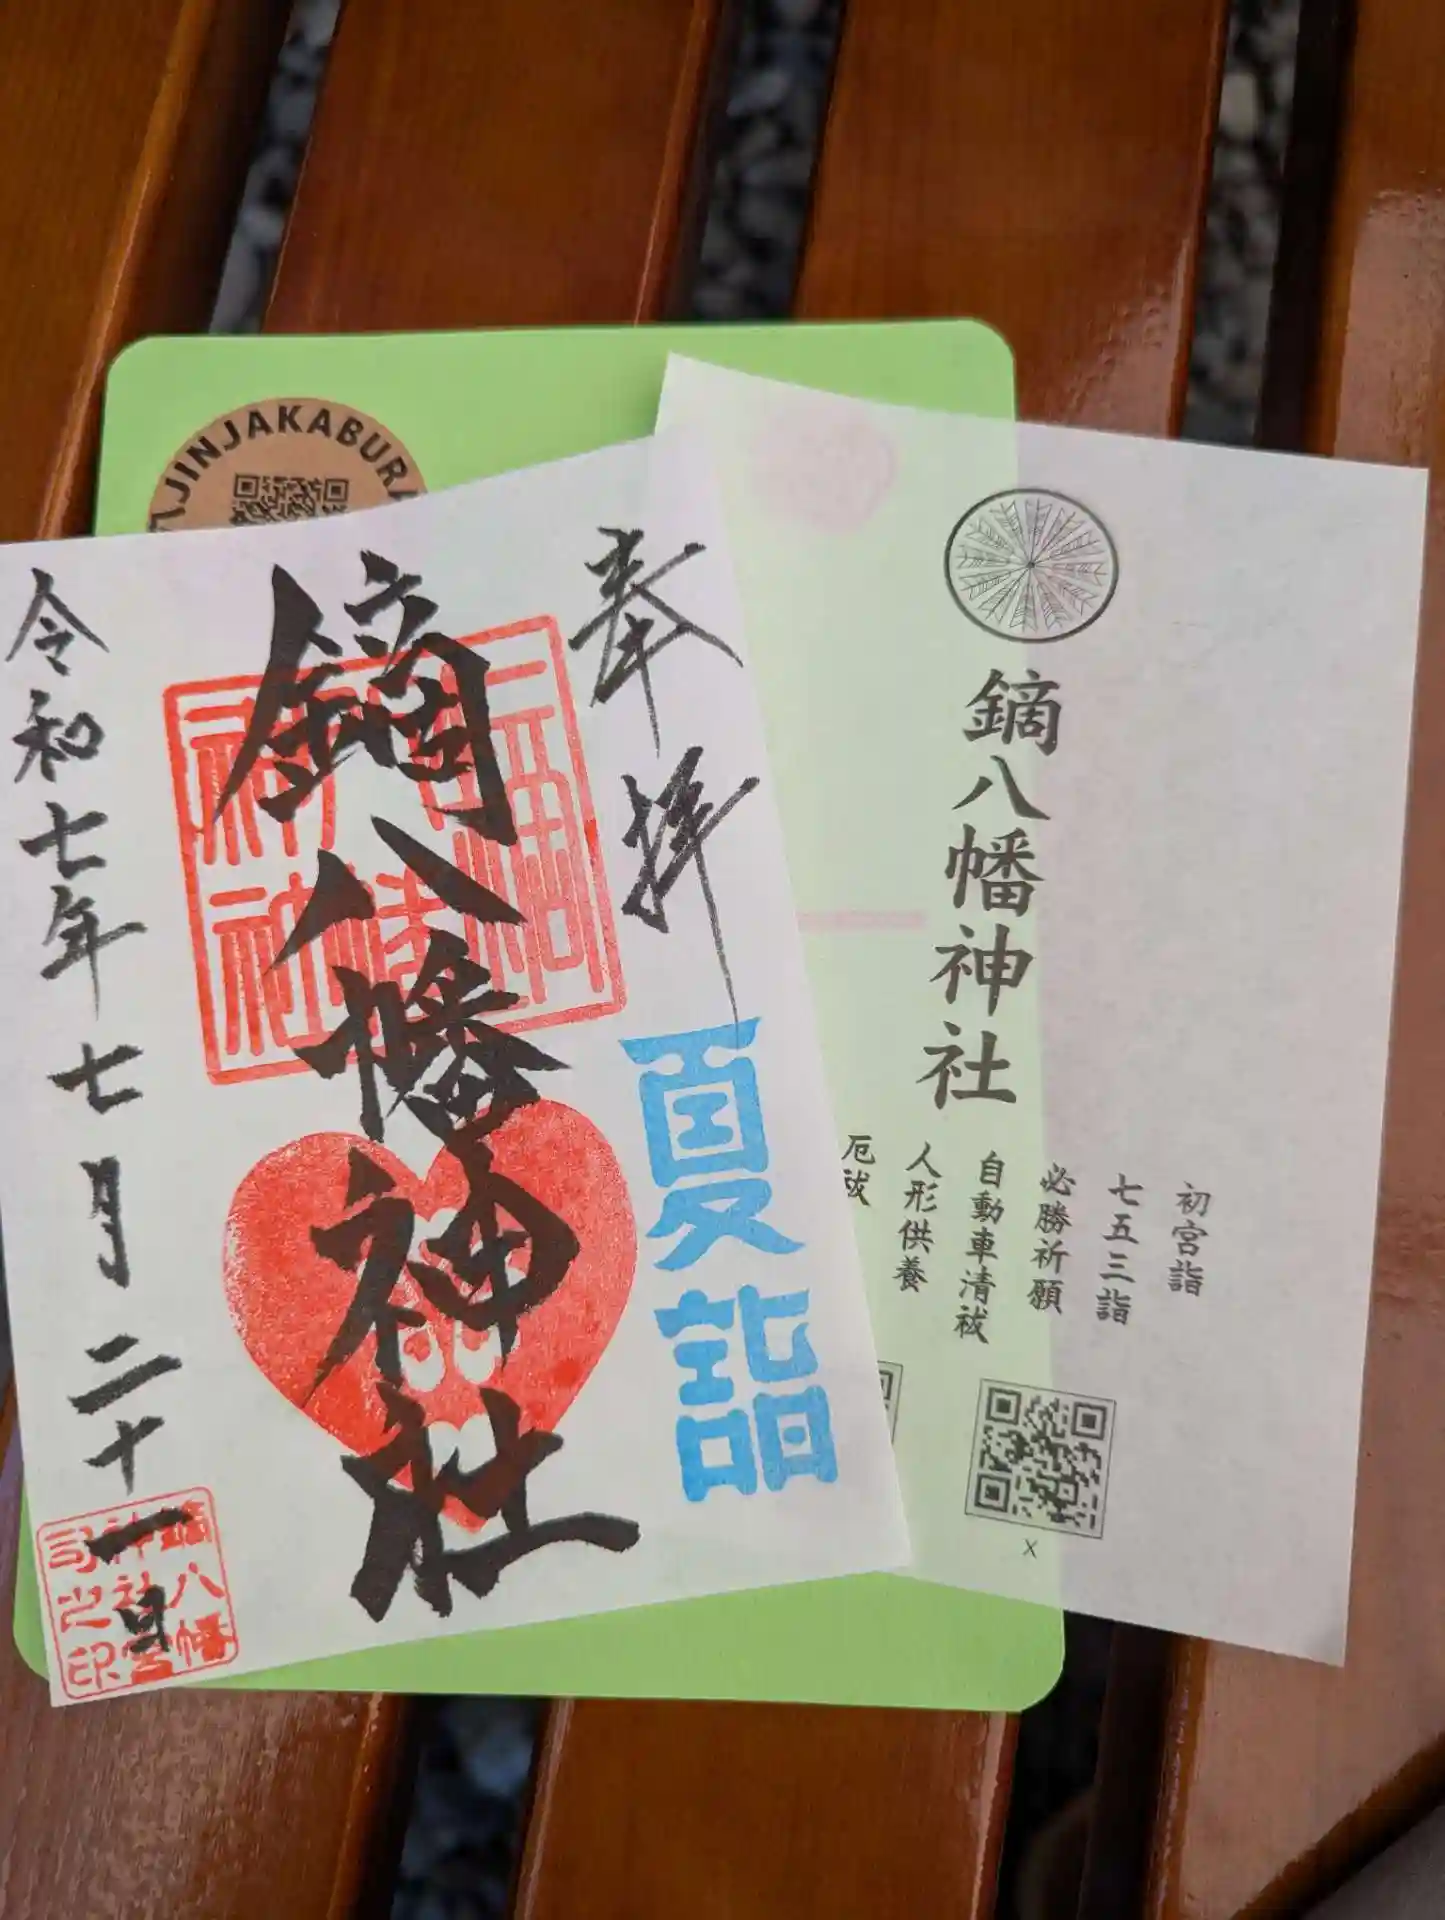 JINJAKABURA
奉拝
夏詣
鏑八幡神社
令和七年七月二十一日
鏑八幡
神社宮
司之印
鏑八幡神社
初宮詣
七五三詣
必勝祈願
自動車清祓
人形供養
厄祓
X